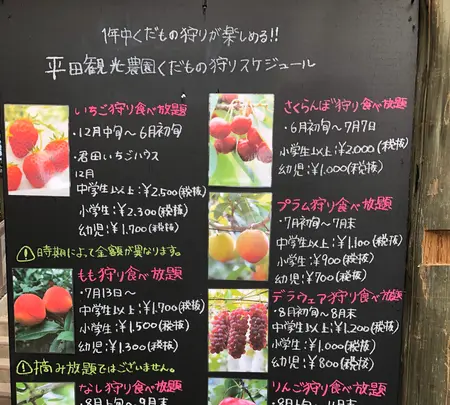 1年中くだもの狩りが楽しめる!!
平田観光農園くだもの狩りスケジュール
いちご狩り食べ放題
12月中旬～6月初旬
・君田いちごハウス
12月
中学生以上:¥2,500(税抜)
小学生:¥2,300(税抜)
幼児:¥1,700(税抜)
!時期によって金額が異なります。
もも狩り食べ放題
・7月13日～
中学生以上:¥1,700(税抜)
小学生:¥1,500(税抜)
幼児:¥1,300(税抜)
!摘み放題ではございません。
なし狩り食べ放題
8月上旬～9月末
さくらんぼ狩り食べ放題
・6月初旬～7月7日
小学生以上:¥2,000(税抜)
幼児:¥1,000(税抜)
プラム狩り食べ放題
・7月初旬～7月末
中学生以上:¥1,100(税抜)
小学生:¥900(税抜)
幼児:¥700(税抜)
デラウェア狩り食べ放題
・8月初旬～8月末
中学生以上:¥1,200(税抜)
小学生:¥1,000(税抜)
幼児:¥800(税抜)
りんご狩り食べ放題